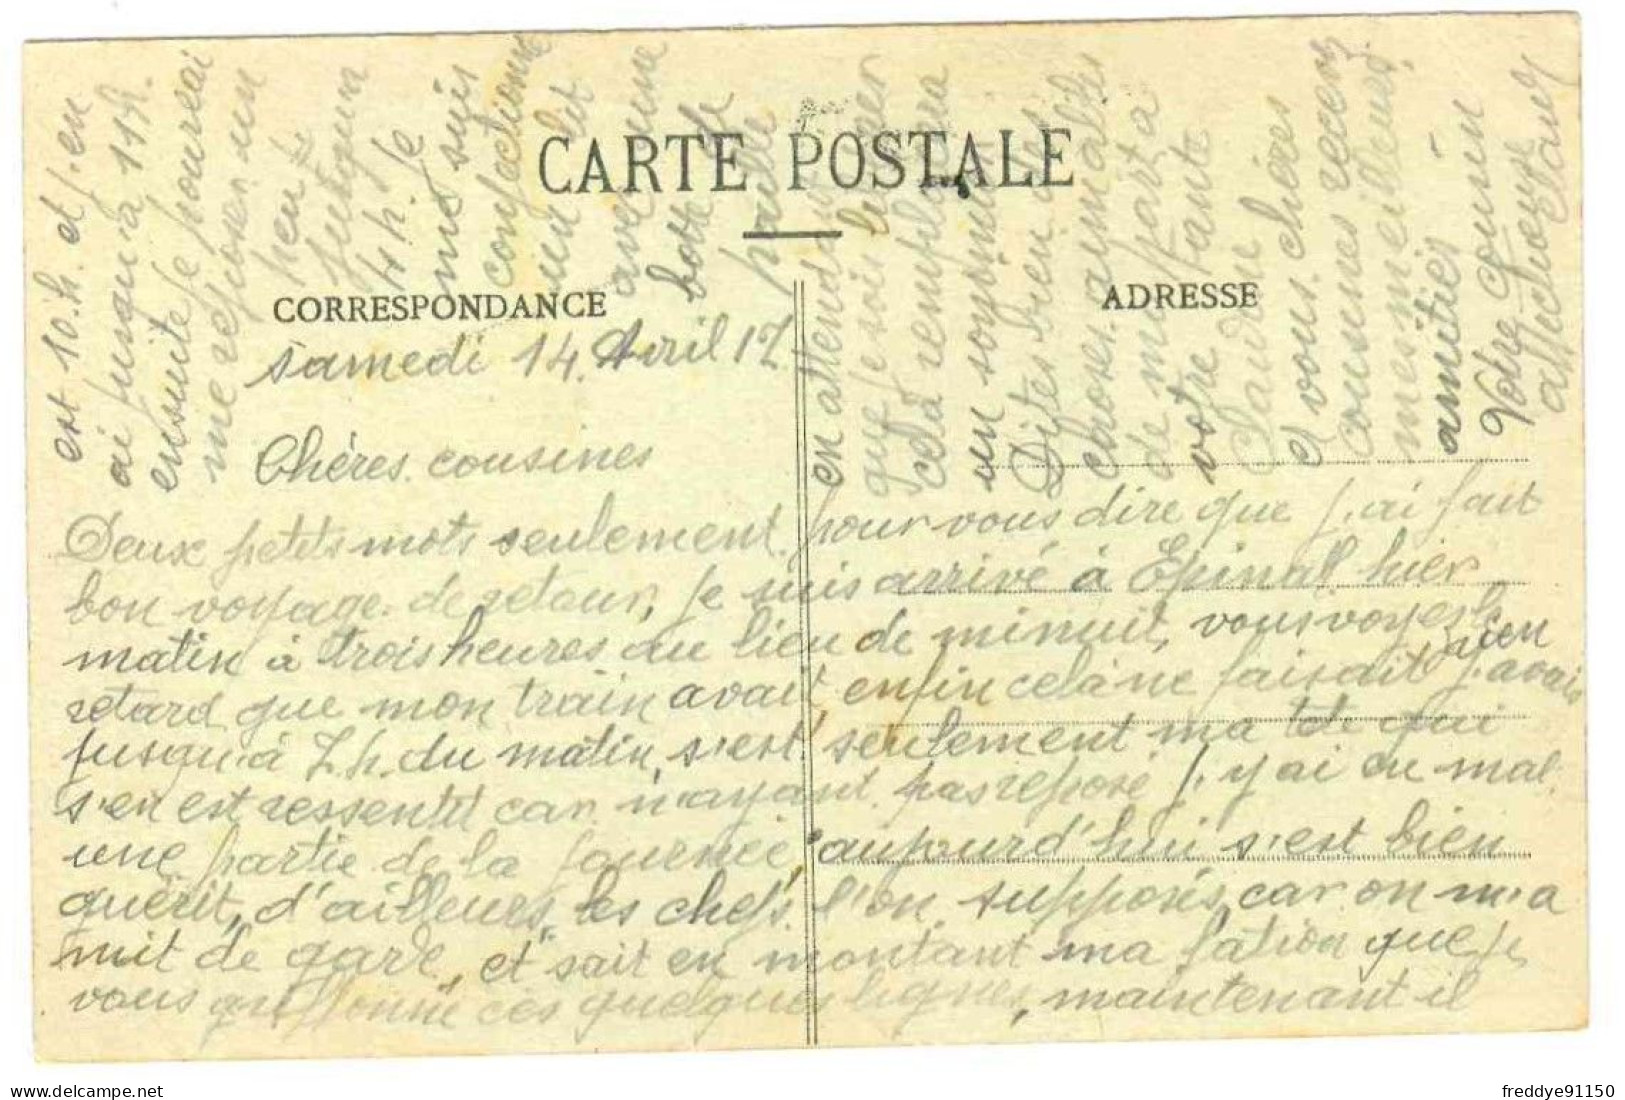 CARTE POSTALE
CORRESPONDANCE
ADRESSE
samedi 14 Avril 17
Chères cousines
Deux petits mots seulement pour vous dire que j'ai fait
bon voyage de retour, je suis arrivé à Epinal hier
matin à trois heures au lieu de minuit, vous voyez le
retard que mon train avait, enfin celà ne faisait rien j'avais
jusqu'à 7 h. du matin, s'est seulement ma tete qui
s'en est ressentit car n'ayant pas reposé j'y ai eu mal
une partie de la journée, aujourd'hui s'est bien
guérit, d'ailleurs les chefs l'on supposés car on m'a
mit de garde, et sait en montant ma faction que je
vous ces quelques lignes, maintenant il
est 10.h. et j'en
ai jusqu'à 11h.
ensuite je pourrai
me reposer un
peu
jusqu'a
4 h. je
me suis
confectionné
un lit
avec une
botte de
paille
en attendant
que je sois
celà remplacera
un
Dites bien
choses aimables
de ma part a
votre tante
Claudine
et vous chères
cousines recevez
mes meilleures
amitiés -
Votre cousin
affectueux
freddye91150